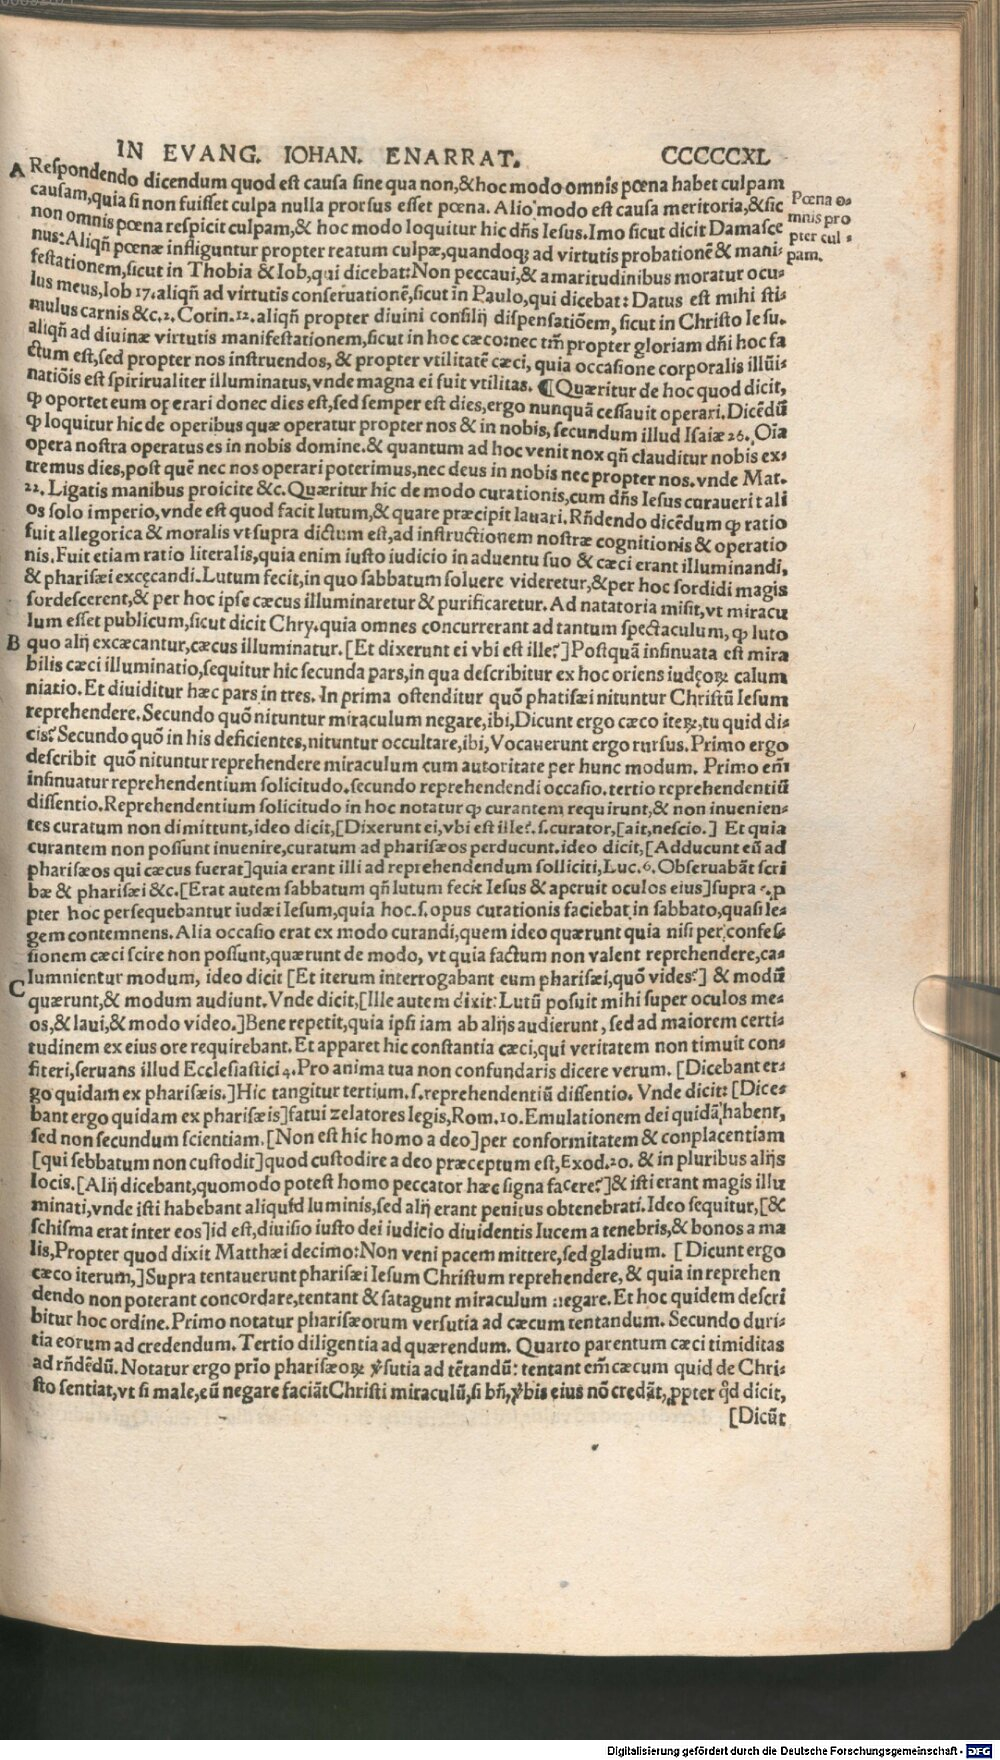 IN EVANG. IOHAN. ENARRAT. CCCCCXL
A Respondendo dicendum quod est causa sine qua non,& hoc modo omnis pœna habet culpam
causam,quia si non fuisset culpa nulla prorsus esset pœna. Alio modo est causa meritoria,& sic
non omnis pœna respicit culpam,& hoc modo loquitur hic dñs Iesus. Imo sicut dicit Damasce
nus: Aliqñ pœnæ infliguntur propter reatum culpæ,quandoqꝫ ad virtutis probationẽ & mani-
festationem,sicut in Thobia & Iob,qui dicebat: Non peccaui,& amaritudinibus moratur ocu-
lus meus,Iob 17. aliqñ ad virtutis conseruationẽ,sicut in Paulo,qui dicebat: Datus est mihi sti-
mulus carnis &c. 2. Corin. 12. aliqñ propter diuini consilij dispensatiõem, sicut in Christo Iesu.
aliqñ ad diuinæ virtutis manifestationem,sicut in hoc cæco: nec tm̃ propter gloriam dñi hoc fa
ctum est,sed propter nos instruendos, & propter vtilitatẽ cæci, quia occasione corporalis illũi-
natiõis est spirirualiter illuminatus,vnde magna ei fuit vtilitas. ¶ Quæritur de hoc quod dicit,
ꝙ oportet eum operari donec dies est,sed semper est dies,ergo nunquã cessauit operari. Dicẽdũ
ꝙ loquitur hic de operibus quæ operatur propter nos & in nobis, secundum illud Isaiæ 26. Oĩa
opera nostra operatus es in nobis domine.& quantum ad hoc venit nox qñ clauditur nobis ex-
tremus dies,post quẽ nec nos operari poterimus,nec deus in nobis nec propter nos.vnde Mat.
22. Ligatis manibus proicite &c. Quæritur hic de modo curationis,cum dñs Iesus curauerit ali
os solo imperio,vnde est quod facit lutum,& quare præcipit lauari. Rñdendo dicẽdum ꝙ ratio
fuit allegorica & moralis vt supra dictum est,ad instructionem nostræ cognitionis & operatio
nis. Fuit etiam ratio literalis,quia enim iusto iudicio in aduentu suo & cæci erant illuminandi,
& pharisæi excęcandi. Lutum fecit,in quo sabbatum soluere videretur,& per hoc sordidi magis
sordescerent,& per hoc ipse cæcus illuminaretur & purificaretur. Ad natatoria misit,vt miracu
lum esset publicum,sicut dicit Chry. quia omnes concurrerant ad tantum spectaculum, ꝙ luto
B quo alij excæcantur,cæcus illuminatur. [Et dixerunt ei vbi est ille?] Postquã insinuata est mira
bilis cæci illuminatio,sequitur hic secunda pars,in qua describitur ex hoc oriens iudęoꝝ calum
niatio. Et diuiditur hæc pars in tres. In prima ostenditur quõ phatisæi nituntur Christũ Iesum
reprehendere. Secundo quõ nituntur miraculum negare,ibi,Dicunt ergo cæco iteꝝ,tu quid di-
cis? Secundo quõ in his deficientes,nituntur occultare,ibi, Vocauerunt ergo rursus. Primo ergo
describit quõ nituntur reprehendere miraculum cum autoritate per hunc modum. Primo em̃
insinuatur reprehendentium solicitudo.secundo reprehendendi occasio.tertio reprehendentiũ
dissentio. Reprehendentium solicitudo in hoc notatur ꝙ curantem requirunt,& non inuenien-
tes curatum non dimittunt,ideo dicit,[Dixerunt ei,vbi est ille?.s. curator,[ait,nescio.] Et quia
curantem non possunt inuenire,curatum ad pharisæos perducunt.ideo dicit,[Adducunt eũ ad
pharisæos qui cæcus fuerat] quia erant illi ad reprehendendum solliciti,Luc.6. Obseruabãt scri
bæ & pharisæi &c.[Erat autem sabbatum qñ lutum fecit Iesus & aperuit oculos eius] supra 5.ꝓ
pter hoc persequebantur iudæi Iesum,quia hoc.s. opus curationis faciebat in sabbato,quasi le-
gem contemnens. Alia occasio erat ex modo curandi,quem ideo quærunt quia nisi per confes-
sionem cæci scire non possunt,quærunt de modo, vt quia factum non valent reprehendere,ca-
C lumnientur modum, ideo dicit [Et iterum interrogabant eum pharisæi,quõ vides?] & modũ
quærunt,& modum audiunt. Vnde dicit,[Ille autem dixit: Lutũ posuit mihi super oculos me-
os,& laui,& modo video.] Bene repetit,quia ipsi iam ab alijs audierunt, sed ad maiorem certi-
tudinem ex eius ore requirebant. Et apparet hic constantia cæci,qui veritatem non timuit con-
fiteri,seruans illud Ecclesiastici 4. Pro anima tua non confundaris dicere verum. [Dicebant er-
go quidam ex pharisæis.] Hic tangitur tertium.s. reprehendentiũ dissentio. Vnde dicit: [Dice-
bant ergo quidam ex pharisæis] fatui zelatores legis,Rom.10. Emulationem dei quidã habent,
sed non secundum scientiam. [Non est hic homo a deo] per conformitatem & conplacentiam
[qui sebbatum non custodit] quod custodire a deo præceptum est,Exod.20. & in pluribus alijs
locis. [Alij dicebant,quomodo potest homo peccator hæc signa facere?] & isti erant magis illu
minati,vnde isti habebant aliquid luminis,sed alij erant penitus obtenebrati. Ideo sequitur,[&
schisma erat inter eos] id est,diuisio iusto dei iudicio diuidentis lucem a tenebris,& bonos a ma
lis,Propter quod dixit Matthæi decimo: Non veni pacem mittere,sed gladium. [Dicunt ergo
cæco iterum,] Supra tentauerunt pharisæi Iesum Christum reprehendere, & quia in reprehen
dendo non poterant concordare,tentant & satagunt miraculum negare. Et hoc quidem descri
bitur hoc ordine. Primo notatur pharisæorum versutia ad cæcum tentandum. Secundo duri-
tia eorum ad credendum. Tertio diligentia ad quærendum. Quarto parentum cæci timiditas
ad rñdẽdũ. Notatur ergo prĩo pharisæoꝝ ꝟsutia ad tẽtandũ: tentant em̃ cæcum quid de Chri-
sto sentiat,vt si male,eũ negare faciãt Christi miraculũ,si bñ,ꝟbis eius nõ credãt,ꝓpter qd̃ dicit,
[Dicũt
Pœna o-
mnis pro
pter cul-
pam.
Digitalisierung gefördert durch die Deutsche Forschungsgemeinschaft - DFG